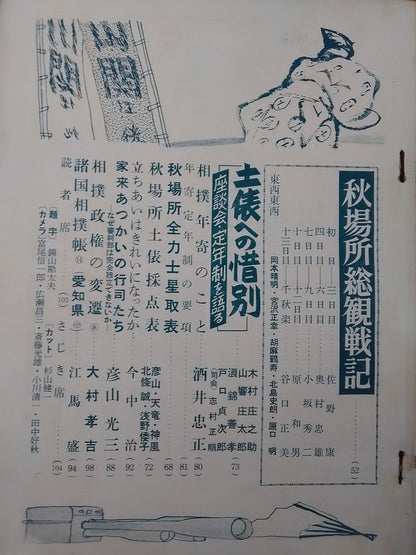 秋場所総観戦記
初日―三日 佐野康
四日―六日 奥村忠雄
七日―九日 小坂秀二
十日―十二日 原和男
十三日―千秋楽 谷口正美
(52)
東西東西
岡本晴明・宮沢正幸・胡麻鶴寿・北島史朗・原口明
土俵への惜別
座談会・定年制を語る
木村庄之助
山響庄太郎
浪錦善孝
戸口貞次郎
(司会)志村正順
73
相撲年寄のこと 酒井忠正 80
年寄定年制の要項 81
秋場所全力士星取表 68
秋場所土俵採点表 彦山・天竜・神風 北條誠・浅野倭子 72
立ちあいはきれいになったか 今中治 92
家来あつかいの行司たち 彦山光三 88
―なぜ審判部は完全独立できないか―
相撲政権の変遷⑨ 大村孝吉 98
諸国相撲帳⑭(愛知県㊂) 江馬盛 94
読者席(102) さじき席(104)
【題字】鏡山勘太夫 【カット】杉山健二
【カメラ】富尾信一郎・広瀬昌三・斎藤光雄・小川清一・田中好秋